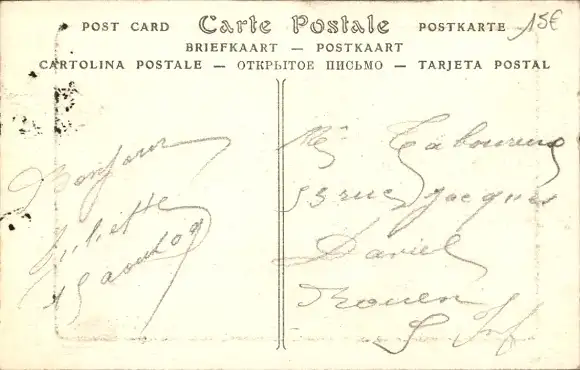 POST CARD Carte Postale POSTKARTE 15€
BRIEFKAART — POSTKAART
CARTOLINA POSTALE — ОТКРЫТОЕ ПИСЬМО — TARJETA POSTAL
Bonjour
Juliette
15 aout 09
Mr Taboureux
53 rue Jacques
Daviel
Rouen
S Inf